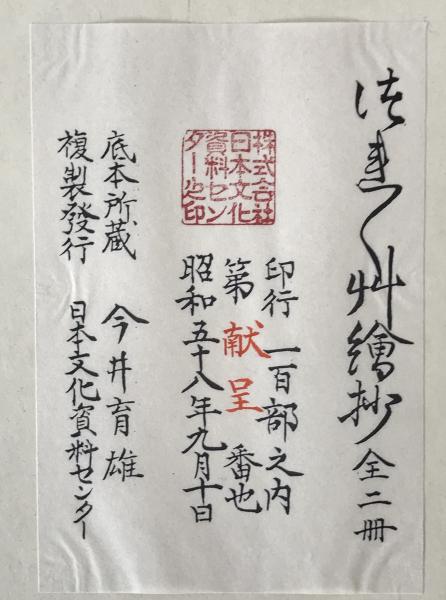 徒連〱艸繪抄 全二冊
印行 一百部之内
第 献呈 番也
昭和五十八年九月十日
株式会社
日本文化
資料セン
ター之印
底本所蔵 今井育雄
複製發行 日本文化資料センター